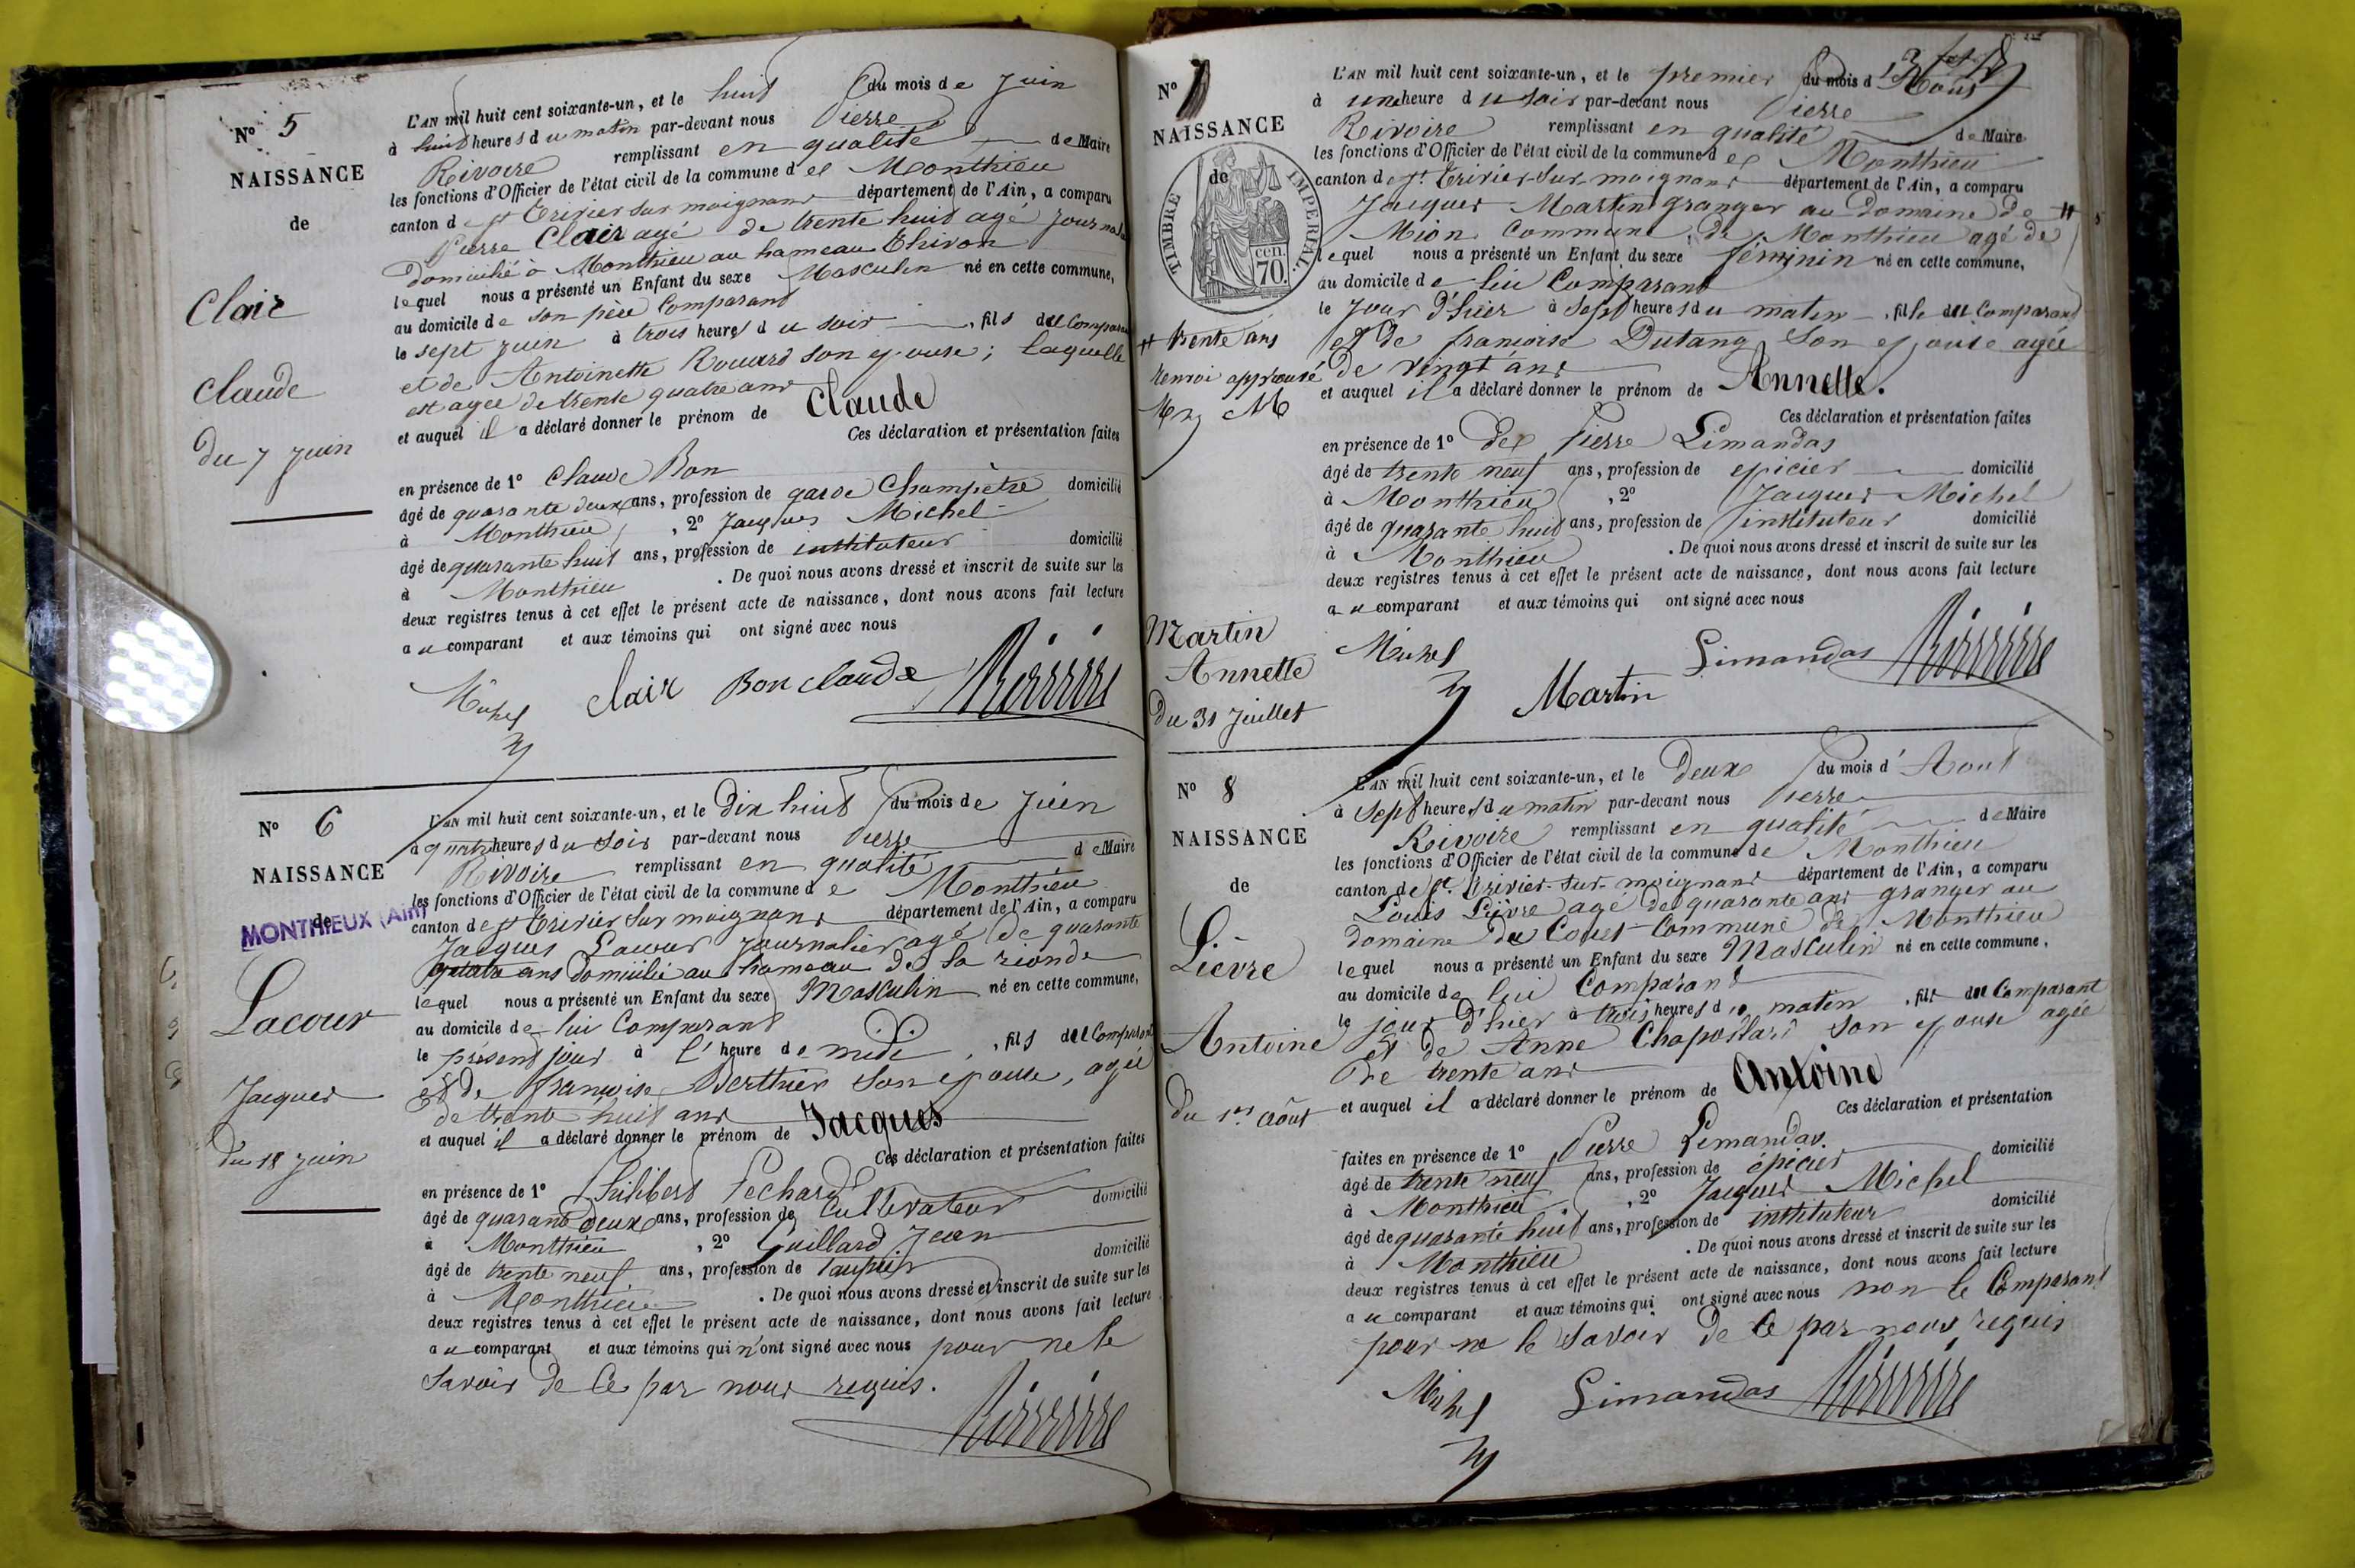 N° 5
NAISSANCE
de
Clair
Claude
du 7 Juin
L'AN mil huit cent soixante-un, et le huit du mois de Juin
à huit heures du matin par-devant nous Pierre
Rivoire remplissant en qualité de Maire
les fonctions d'Officier de l'état civil de la commune de Monthieu
canton de St Trivier sur moignans département de l'Ain, a comparu
Pierre Clair agé de trente huit agé journal
Domicilié à Monthieu au hameau Thivon
lequel nous a présenté un Enfant du sexe Masculin né en cette commune,
au domicile de son père Comparant
le sept juin à trois heures du soir , fils du Compara
et de Antoinette Rouard son epouse ; laquelle
est agée de trente quatre ans
et auquel il a déclaré donner le prénom de Claude
Ces déclaration et présentation faites
en présence de 1° Claude Bon
âgé de quarante deux ans, profession de garde Champêtre domicilié
à Monthieu , 2° Jacques Michel
âgé de quarante huit ans, profession de instituteur domicilié
à Monthieu . De quoi nous avons dressé et inscrit de suite sur les
deux registres tenus à cet effet le présent acte de naissance, dont nous avons fait lecture
au comparant et aux témoins qui ont signé avec nous
Michel Clair Bon Claude Rivoire
N° 6
NAISSANCE
de
MONTHIEUX (Ain)
Lacour
Jacques
du 18 Juin
L'AN mil huit cent soixante-un, et le Dix huit du mois de Juin
à quatre heures du soir par-devant nous Pierre
Rivoire remplissant en qualité de Maire
les fonctions d'Officier de l'état civil de la commune de Monthieu
canton de St Trivier sur moignans département de l'Ain, a comparu
Jacques Lacour Journalier agé de quarante
quatre ans Domicilié au hameau de la rionde
lequel nous a présenté un Enfant du sexe Masculin né en cette commune,
au domicile de lui Comparant
le présent jour à l'heure de midi , fils du Comparant
et de françoise Berthier son epouse, agée
de trente huit ans
et auquel il a déclaré donner le prénom de Jacques
Ces déclaration et présentation faites
en présence de 1° Philibert Pechard
âgé de quarante deux ans, profession de Cultivateur domicilié
à Monthieu , 2° Guillard Jean
âgé de trente neuf ans, profession de Taupier domicilié
à Monthieu . De quoi nous avons dressé et inscrit de suite sur les
deux registres tenus à cet effet le présent acte de naissance, dont nous avons fait lecture
au comparant et aux témoins qui n'ont signé avec nous pour ne le
savoir de ce par nous requis.
Rivoire
N° 7
NAISSANCE
de
TIMBRE IMPERIAL.
70 cen.
# trente ans
renvoi approuvé
Martin
Annette
Du 31 Juillet
L'AN mil huit cent soixante-un, et le premier du mois d'Aout
à une heure du soir par-devant nous Pierre
Rivoire remplissant en qualité de Maire
les fonctions d'Officier de l'état civil de la commune de Monthieu
canton de St Trivier-sur-moignans département de l'Ain, a comparu
Jacques Martin granger au Domaine de #
Mion Commune de Monthieu agé de
lequel nous a présenté un Enfant du sexe féminin né en cette commune,
au domicile de lui Comparant
le jour d'hier à sept heures du matin , fille du Comparant
et de françoise Dutang son epouse agée
de vingt ans
et auquel il a déclaré donner le prénom de Annette.
Ces déclaration et présentation faites
en présence de 1° de Pierre Limandas
âgé de trente neuf ans, profession de epicier domicilié
à Monthieu , 2° Jacques Michel
âgé de quarante huit ans, profession de instituteur domicilié
à Monthieu . De quoi nous avons dressé et inscrit de suite sur les
deux registres tenus à cet effet le présent acte de naissance, dont nous avons fait lecture
au comparant et aux témoins qui ont signé avec nous
Michel Martin Limandas Rivoire
N° 8
NAISSANCE
de
Lièvre
Antoine
du 1er Août
L'AN mil huit cent soixante-un, et le Deux du mois d'Aout
à Sept heures du matin par-devant nous Pierre
Rivoire remplissant en qualité de Maire
les fonctions d'Officier de l'état civil de la commune de Monthieu
canton de St Trivier-sur-moignans département de l'Ain, a comparu
Louis Lièvre agé de quarante ans granger au
domaine du Commune de Monthieu
lequel nous a présenté un Enfant du sexe Masculin né en cette commune,
au domicile de lui Comparant
le jour d'hier à trois heures du matin , fils du Comparant
et de Anne Chapollard son epouse agée
De trente ans
et auquel il a déclaré donner le prénom de Antoine
Ces déclaration et présentation
faites en présence de 1° Pierre Limandas
âgé de trente neuf ans, profession de épicier domicilié
à Monthieu , 2° Jacques Michel
âgé de quarante huit ans, profession de instituteur domicilié
à Monthieu . De quoi nous avons dressé et inscrit de suite sur les
deux registres tenus à cet effet le présent acte de naissance, dont nous avons fait lecture
au comparant et aux témoins qui ont signé avec nous non le Comparant
pour ne le savoir de ce par nous requis
Michel Limandas Rivoire